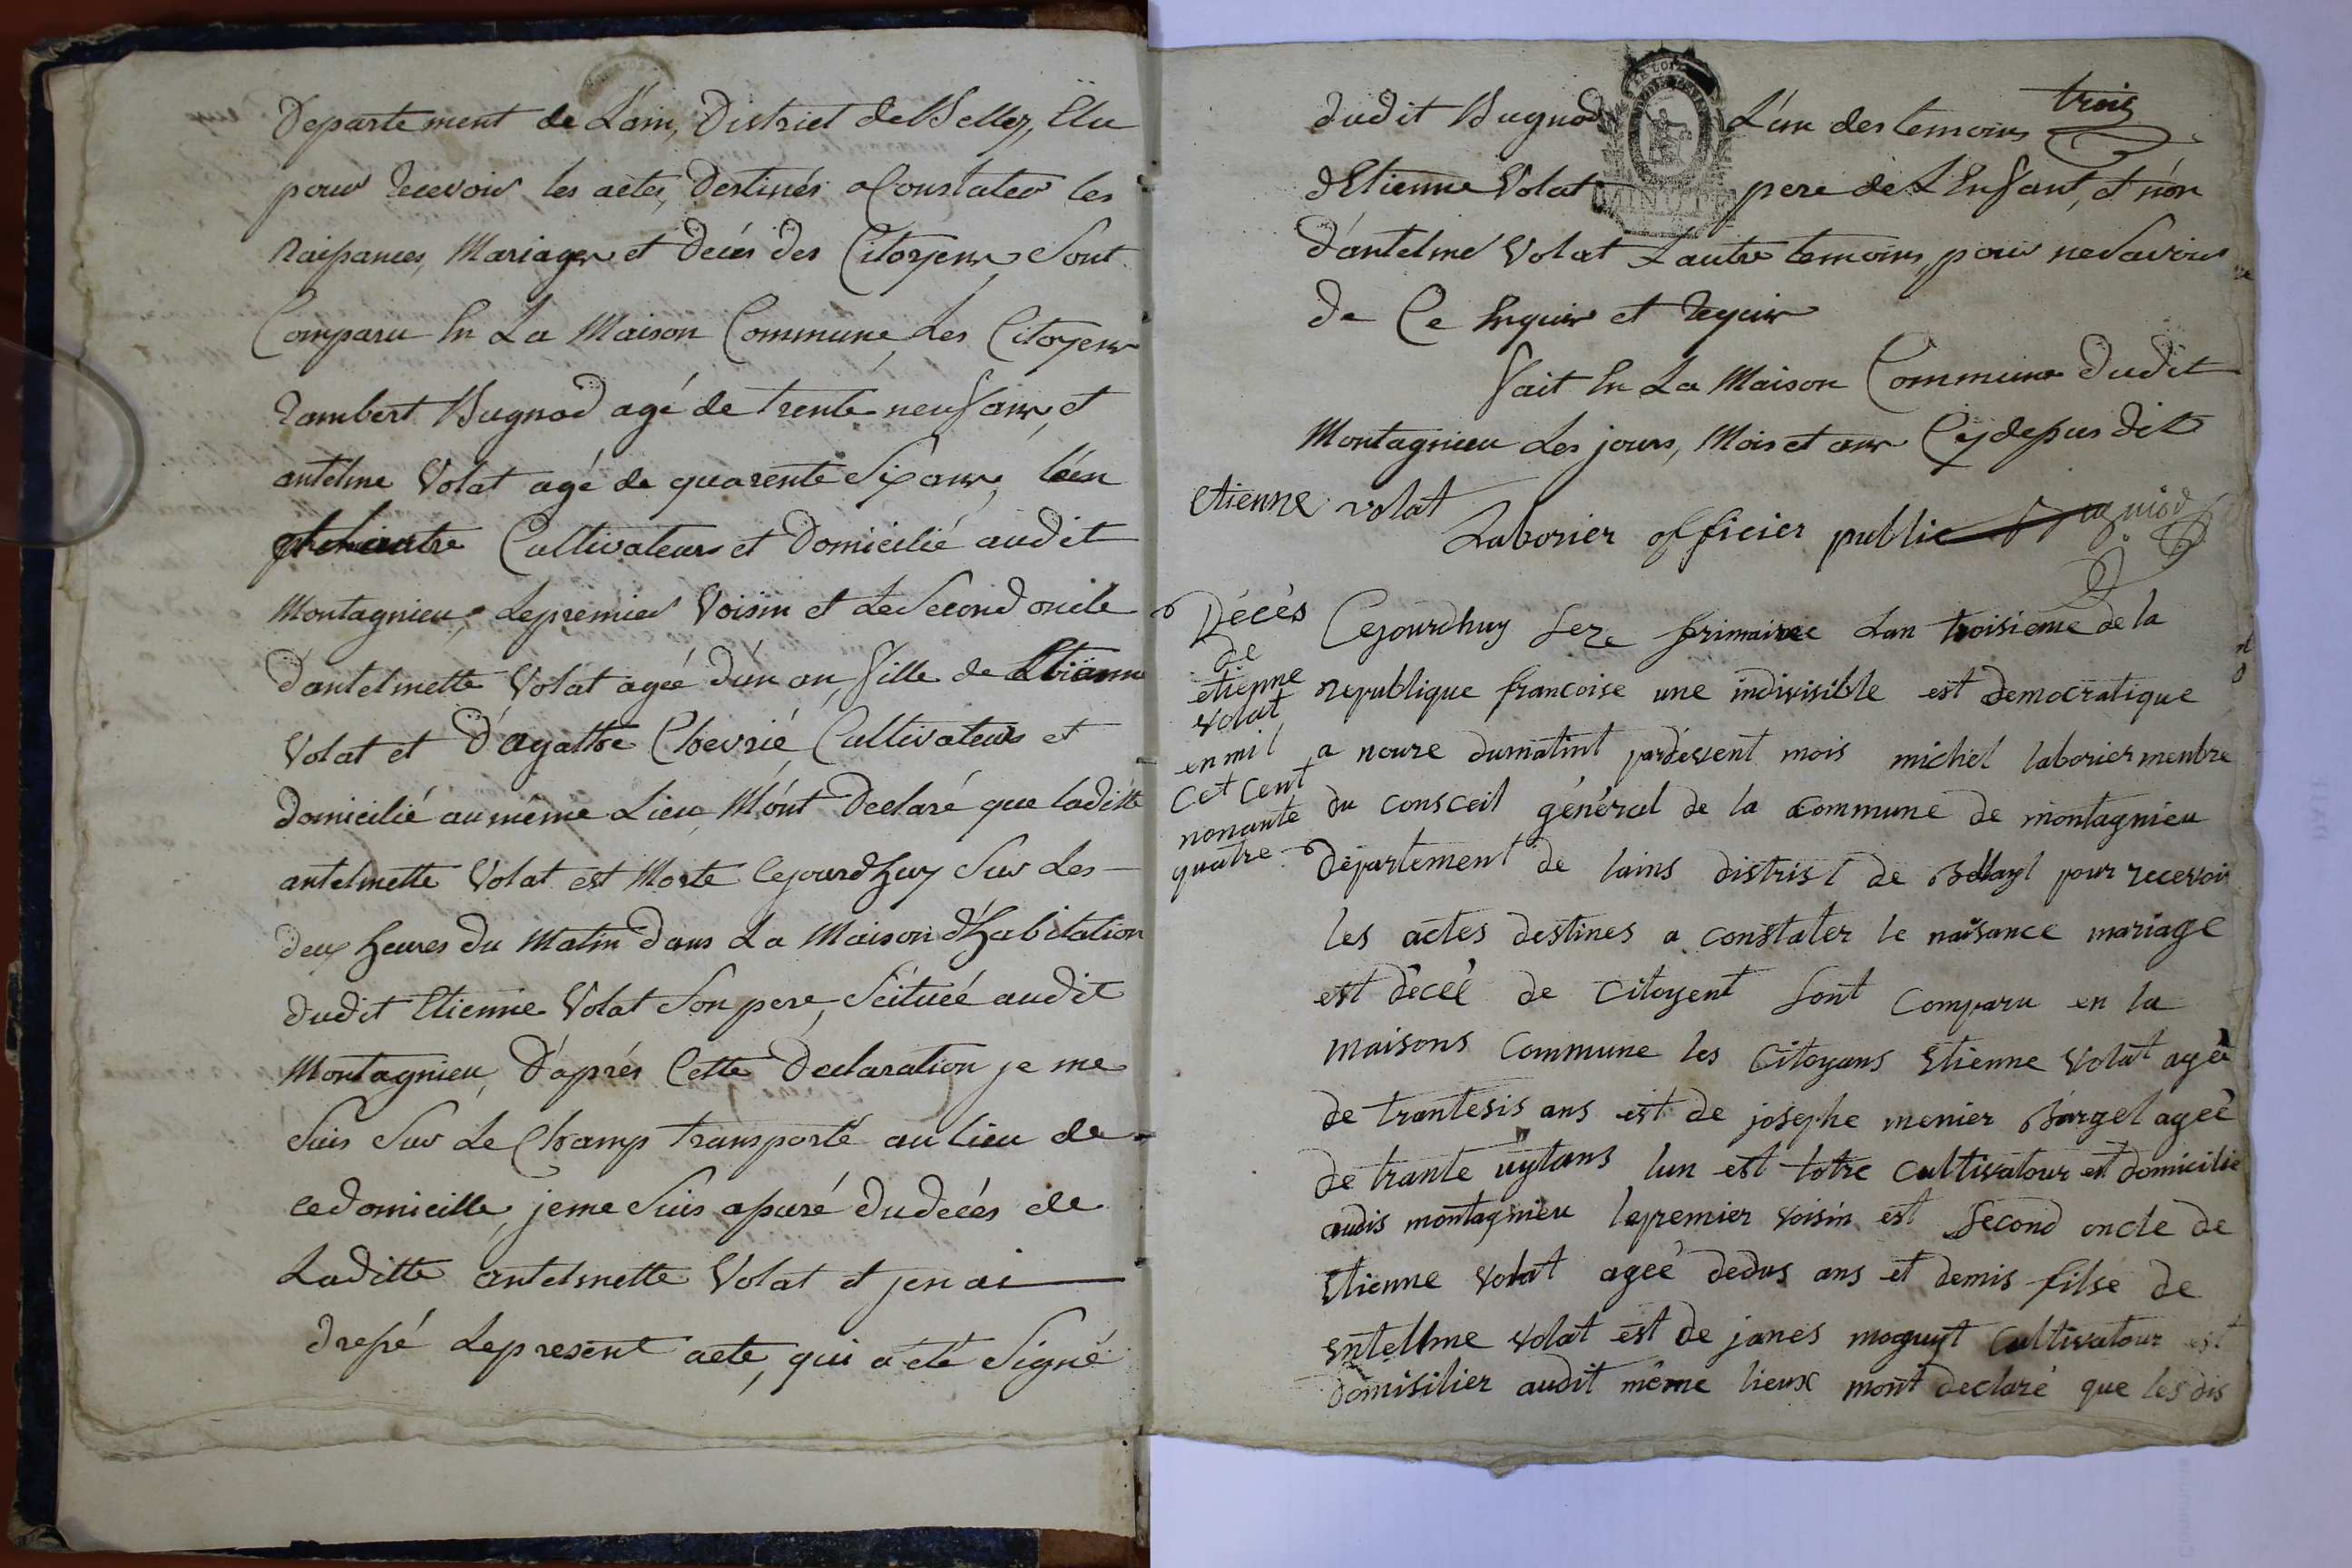 Departement de L'ain, District de Belley, Elu
pour recevoir les actes, Destinés a Constater les
Naissances, Mariages et Décès des Citoyens, Sont
Comparu En La Maison Commune, Les Citoyens
Rambert Bugnod agé de trente neuf ans, et
antelme Volat agé de quarente Six ans, lun
et l'autre Cultivateurs et Domicilié audit
Montagnieu, Le premier Voisin et Le Second oncle
D'antelmette Volat agée D'un an, fille de Etienne
Volat et D'agathe Chevrié, Cultivateurs et
Domicilié au même Lieu, M'ont Declaré que laditte
antelmette Volat est Morte Cejourdhuy Sur Les
deux heures Du Matin Dans La Maison D'habitation
Dudit Etienne Volat Son pere, Scituéé audit
Montagnieu, D'aprés Cette Declaration je me
Suis Sur Le Champ transporté au lieu de
ce domicille, je me Suis assuré Du decés de
Laditte antelmette Volat et jen ai
Dressé Le present acte, qui a été Signé
trois
dudit Bugnod L'un des temoins
d'Etienne Volat pere de L'Enfant, et non
D'antelme Volat L'autre temoins, pour ne Savoir
De Ce Enquis et Requis
LA LOI
MINUTE
fait En La Maison Commune Dudit
Montagnieu Les jours, Mois et ans Cy depus Dit
etienne volat
Laborier officier public Bugniod
Décès
de
etienne
volat
en mil
cet cent
nonante
quatre
Cejourdhuy seze frimairee Lan troisieme de la
republique francoise une indivisible est democratique
a neure dumatint pardevent mois michel laborier menbre
du consceil général de la commune de montagnieu
Département de lains district de Bellayt pour recevoir
les actes destines a constater le naisance mariage
est décéé de Citoyent sont Comparu en la
maisons Commune les Citoyans Etienne Volat ageé
de trantesis ans est de josephe menier Bargel ageé
de trante uytans lun est lotre Cultivatour est domicilie
audis montagnieu lepremier voisin est Second oncle de
Etienne Volat ageé dedus ans et demis filse de
Entellme volat est de janes moguyt Cultivatour est
domisilier audit même lieux mont declaré que les dis